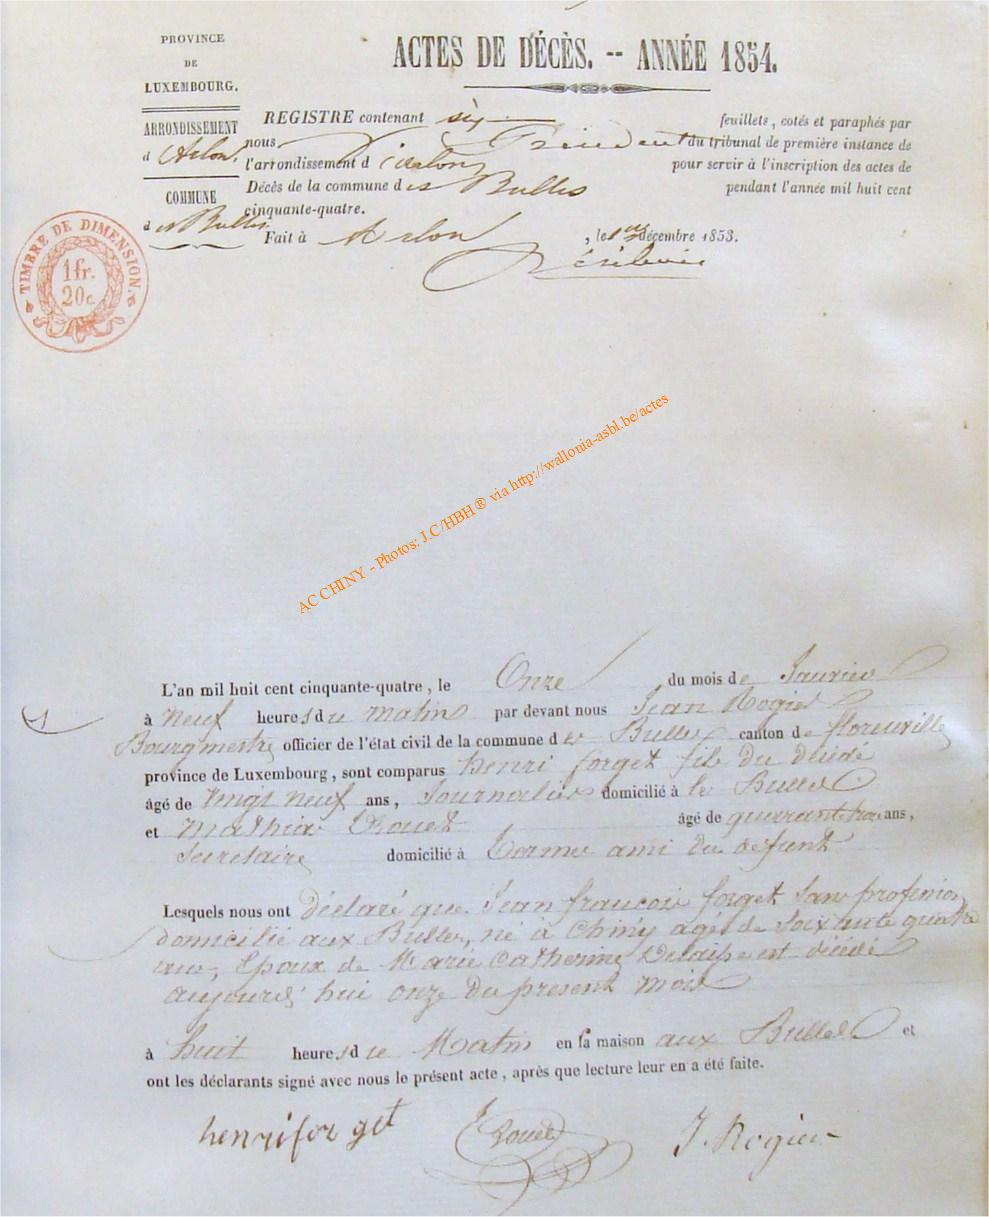 PROVINCE
DE
LUXEMBOURG.
ARRONDISSEMENT
d'Arlon.
COMMUNE
des Bulles
TIMBRE DE DIMENSION.
1 fr.
20 c.
ACTES DE DÉCÈS. -- ANNÉE 1854.
REGISTRE contenant six feuillets, cotés et paraphés par
nous Président du tribunal de première instance de
l'arrondissement d'arlon pour servir à l'inscription des actes de
Décès de la commune des Bulles pendant l'année mil huit cent
cinquante-quatre.
Fait à Arlon, le 1er décembre 1853.
AC CHINY - Photos: J.C/HBH ® via http://wallonia-asbl.be/actes
1
L'an mil huit cent cinquante-quatre, le Onze du mois de Janvier
à neuf heures du matin par devant nous Jean Rogier
Bourgmestre officier de l'état civil de la commune des Bulles canton de florenville
province de Luxembourg, sont comparus henri forget fils du décédé
âgé de vingt neuf ans, Journalier domicilié à les Bulles
et Mathieu Rouet âgé de quarante trois ans,
Secretaire domicilié à Termes ami du défunt
Lesquels nous ont déclaré que Jean françois forget Sans profession
domicilié aux Bulles, né à Chiny agé de Soixante quatre
ans, Epoux de Marie Catherine est décédé
aujourd'hui onze du present mois
à huit heures du Matin en sa maison aux Bulles et
ont les déclarants signé avec nous le présent acte, après que lecture leur en a été faite.
henri for get Rouet J. Rogier